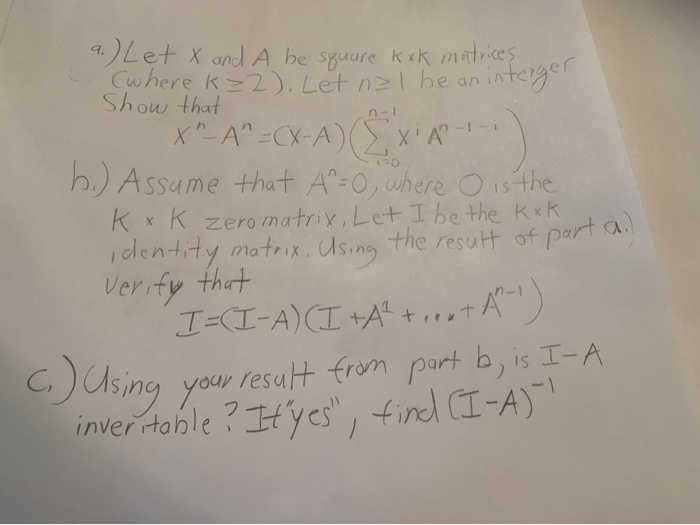 a.) Let X and A be square k×k matrices
(where k ≥ 2). Let n ≥ 1 be an interger
Show that
Xⁿ - Aⁿ = (X-A) (∑_{i=0}^{n-1} Xⁱ Aⁿ⁻¹⁻ⁱ)
b.) Assume that Aⁿ = 0, where O is the
K × K zero matrix. Let I be the K×K
identity matrix. Using the result of part a.)
Verify that
I = (I-A)(I + A¹ + ... + Aⁿ⁻¹)
C.) Using your result from part b, is I-A
inveritable? If "yes", find (I-A)⁻¹